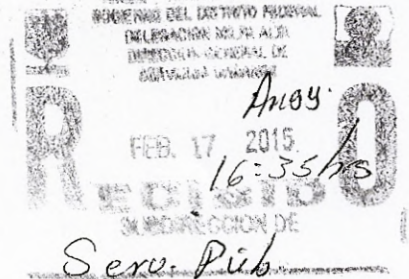 GOBIERNO DEL DISTRITO FEDERAL
DELEGACIÓN MILPA ALTA
DIRECCIÓN GENERAL DE
SERVICIOS URBANOS
FEB. 17 2015
16:35hs
RECIBIDO
SUBDIRECCION DE
Serv. Púb.